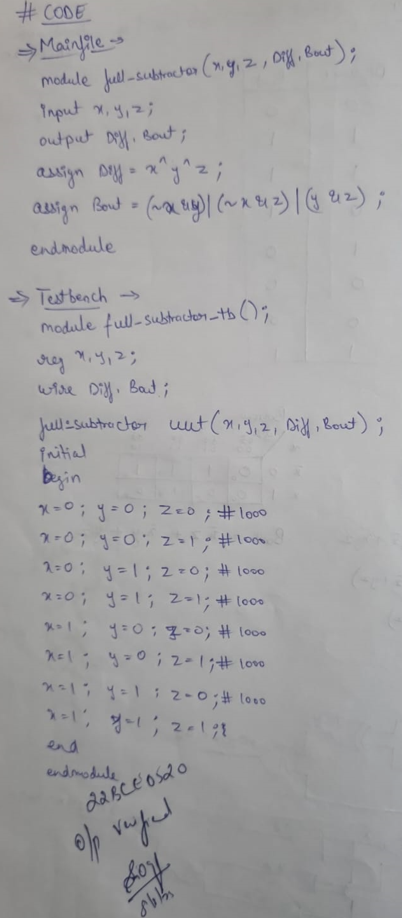 # CODE
⇒ Mainfile →
module full-subtractor (x,y,z, Diff, Bout);
input x, y, z;
output Diff, Bout;
assign Diff = x^y^z;
assign Bout = (~x & y) | (~x & z) | (y & z);
endmodule
⇒ Testbench →
module full-subtractor-tb();
reg x, y, z;
wire Diff, Bout;
full-subtractor uut (x, y, z, Diff, Bout);
initial
begin
x=0; y=0; z=0; #1000
x=0; y=0; z=1; #1000
x=0; y=1; z=0; #1000
x=0; y=1; z=1; #1000
x=1; y=0; z=0; #1000
x=1; y=0; z=1; #1000
x=1; y=1; z=0; #1000
x=1; y=1; z=1;
end
endmodule
22BCE0520
o/p verified